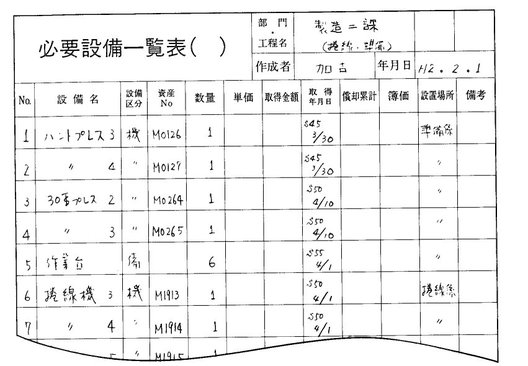 必要設備一覧表( )
部門・工程名 製造二課
(捲線・準備)
作成者 加古 年月日 H2.2.1
No. 設備名 設備区分 資産No 数量 単価 取得金額 取得年月日 償却累計 簿価 設置場所 備考
1 ハンドプレス 3 機 M0126 1 S45 3/30 準備係
2 〃 4 〃 M0127 1 S45 3/30 〃
3 30屯プレス 2 〃 M0264 1 S50 4/10 〃
4 〃 3 〃 M0265 1 S50 4/10 〃
5 作業台 備 6 S55 4/1 〃
6 捲線機 3 機 M1913 1 S50 4/1 捲線係
7 〃 4 〃 M1914 1 S50 4/1 〃
5 〃 M1915